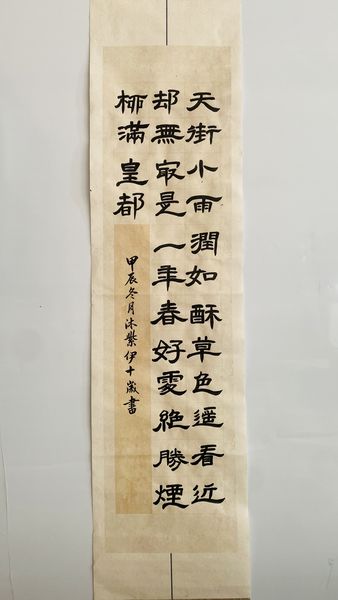 天街小雨潤如酥草色遥看近
却無最是一年春好處絶勝煙
柳滿皇都
甲辰冬月沐紫伊十歲書